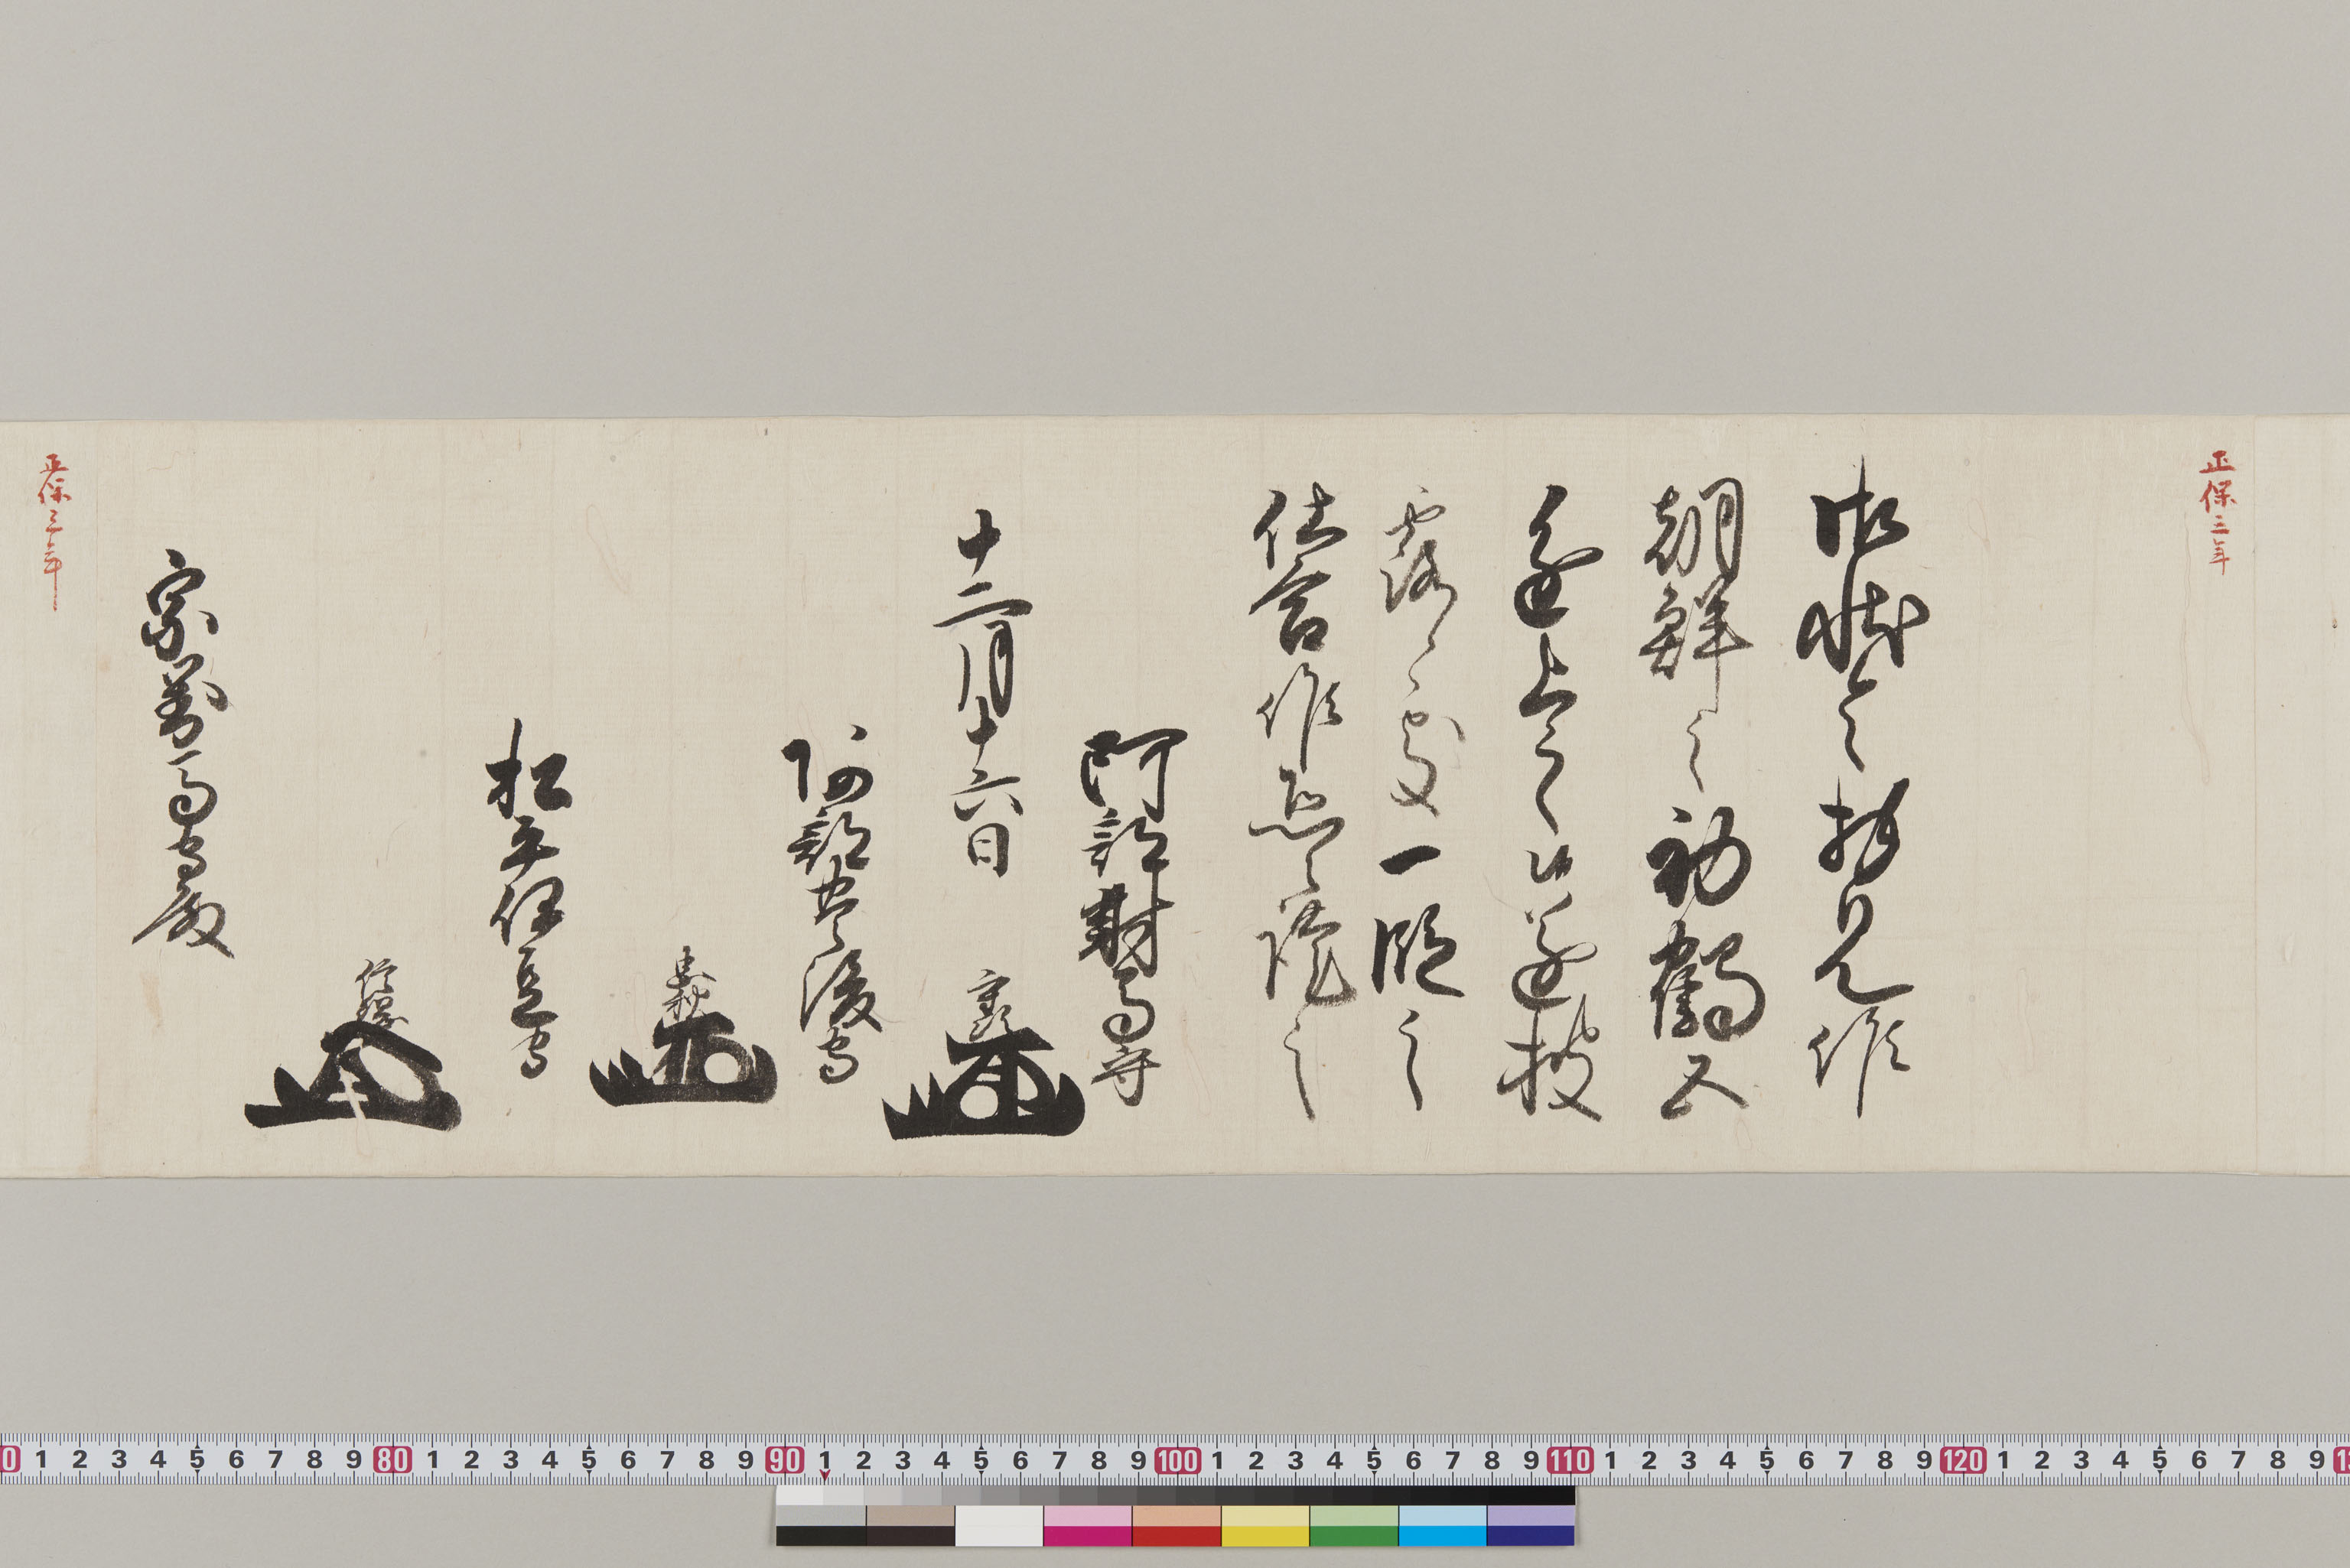 正保三年
御状令披見候
朝鮮之初鶴
進上之候遂披
露候処一段之
仕合候恐々謹言
阿部對馬守
十二月十六日
重次
阿部豊後守
忠秋
松平伊豆守
信綱
宗對馬守殿
正保三年
0 1 2 3 4 5 6 7 8 9 80 1 2 3 4 5 6 7 8 9 90 1 2 3 4 5 6 7 8 9 100 1 2 3 4 5 6 7 8 9 110 1 2 3 4 5 6 7 8 9 120 1 2 3 4 5 6 7 8 9